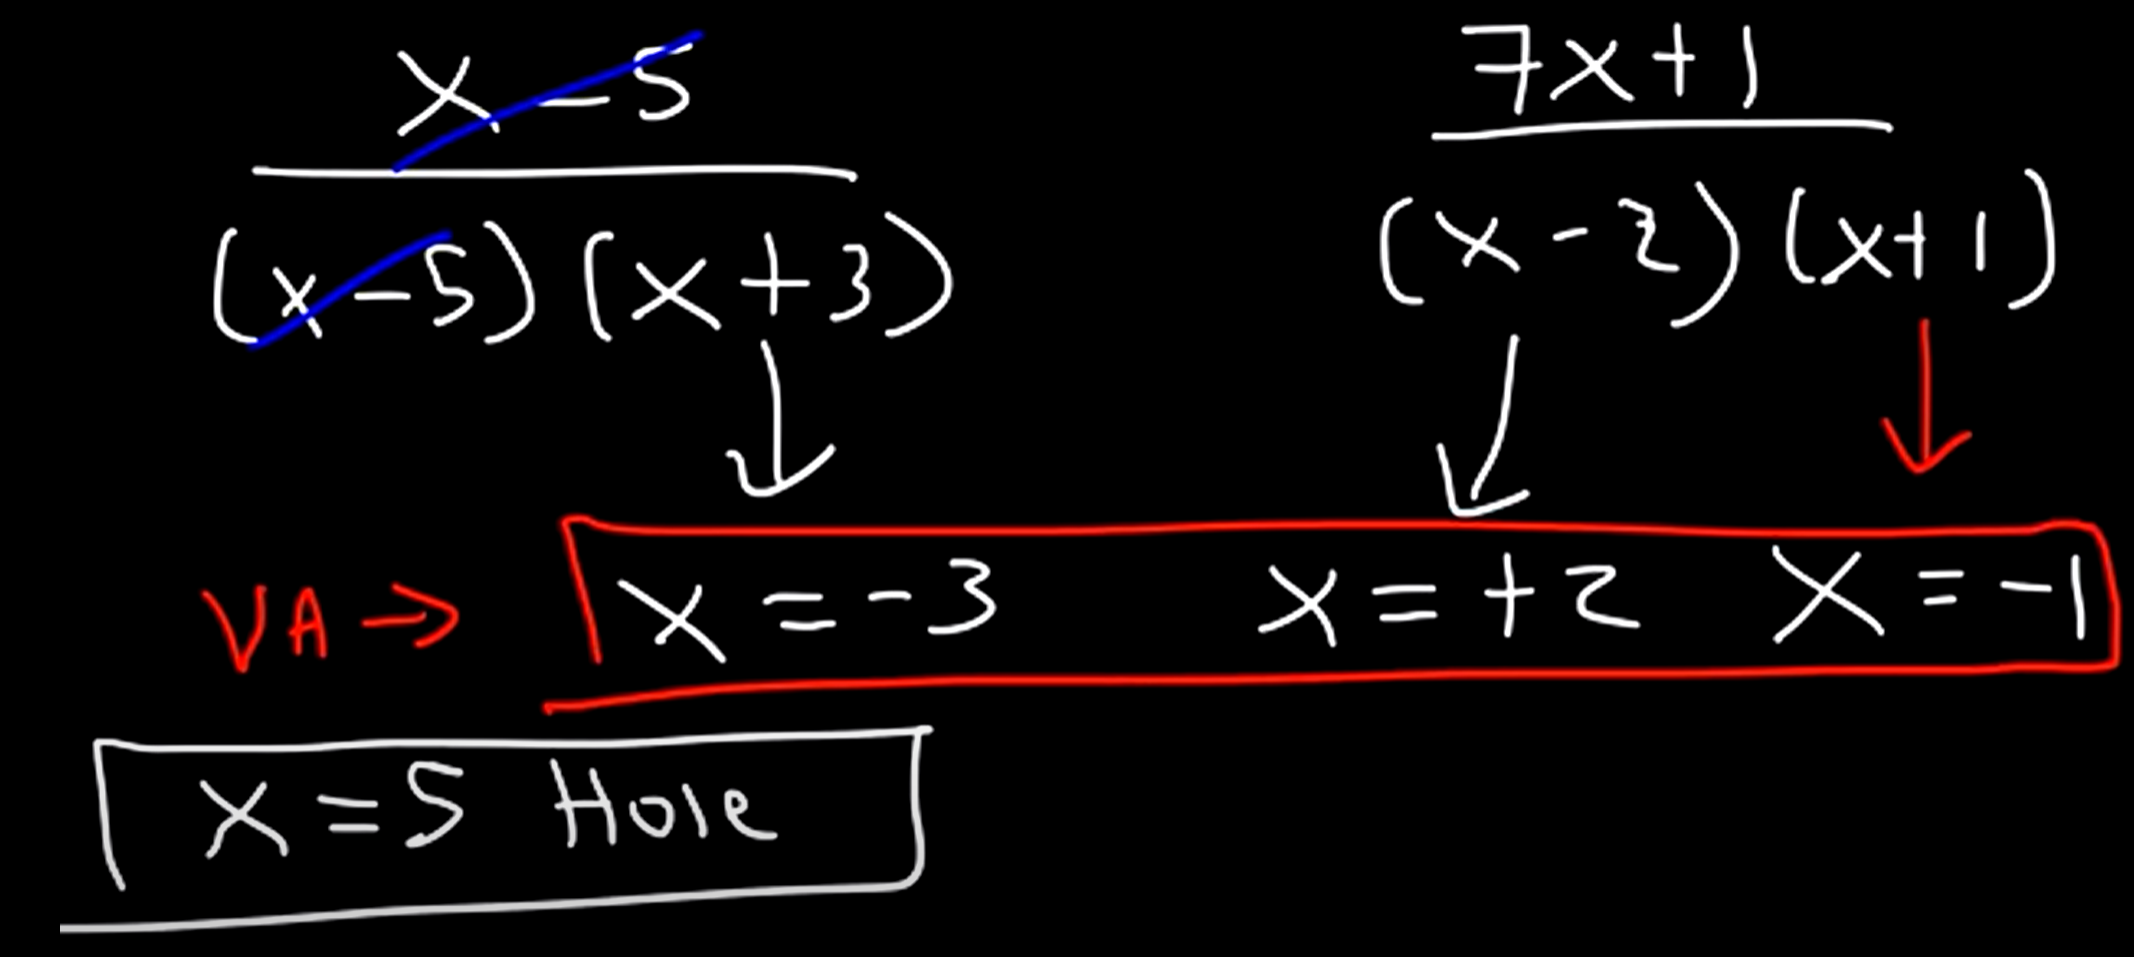 x - 5 7x + 1
(x - 5) (x + 3) (x - 2) (x + 1)
VA → x = -3 x = +2 x = -1
x = 5 Hole